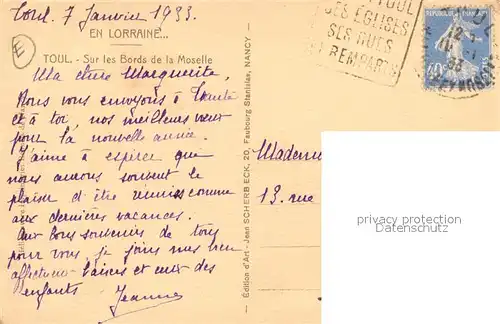 Toul. 7 Janvier 1933.
EN LORRAINE...
TOUL. - Sur les Bords de la Moselle
Ma chère Marguerite,
Nous vous envoyons à Tante
et à toi, nos meilleurs vœux
pour la nouvelle année.
J'aime à espérer que
nous aurons souvent le
plaisir d'être réunis comme
aux dernières vacances.
Aux bons souvenirs de tous
pour vous, je joins mes bien
affectueux baisers et ceux des
enfants. Jeanne
Édition d'Art - Jean SCHERBECK, 20, Faubourg Stanislas, NANCY
TOUL
SES EGLISES
SES RUES
REMPARTS
13. rue
privacy protection
Persönlichkeitsschutz
E